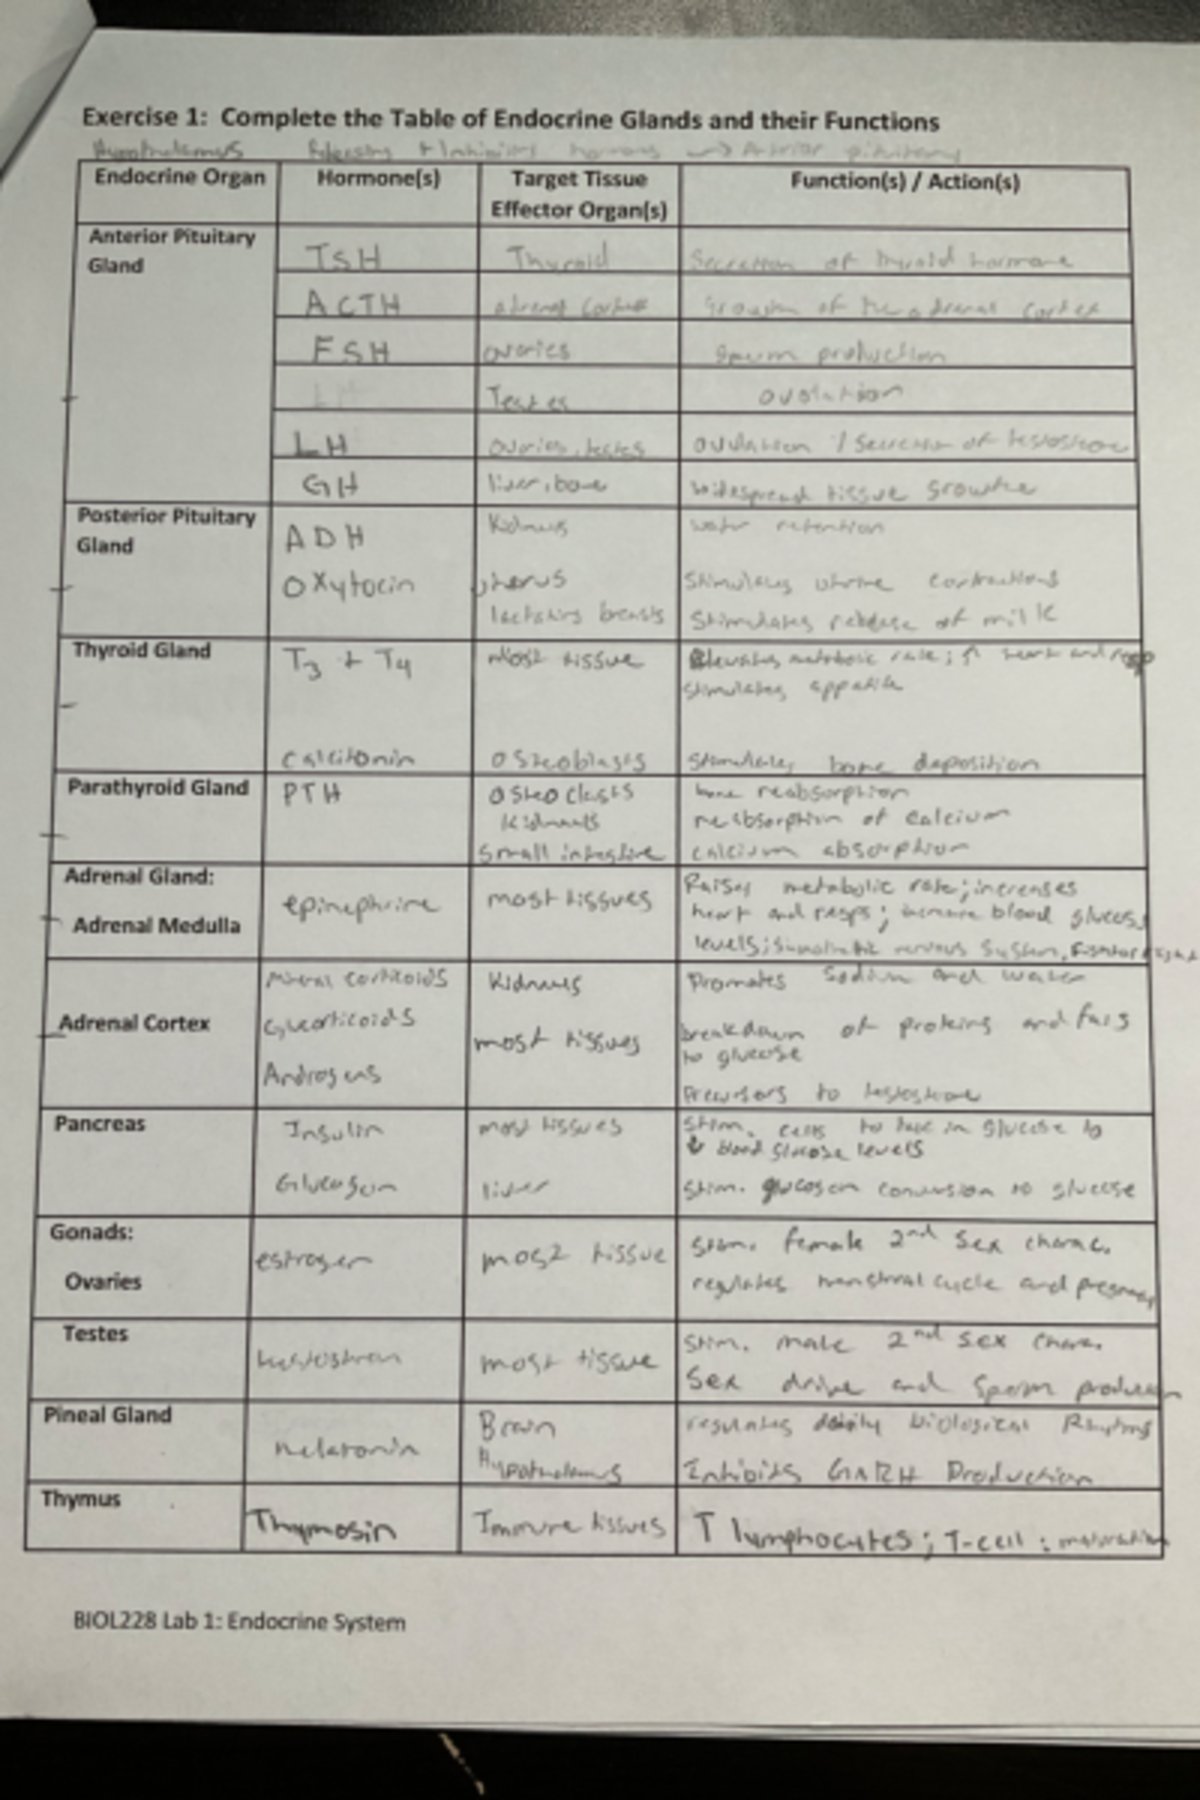 Exercise 1: Complete the Table of Endocrine Glands and their Functions
Hypothalamus Releasing + Inhibiting hormones → Anterior pituitary
Endocrine Organ Hormone(s) Target Tissue Effector Organ(s) Function(s) / Action(s)
Anterior Pituitary Gland
TSH Thyroid Secretion of thyroid hormone
ACTH adrenal cortex Growth of the adrenal cortex
FSH ovaries sperm production
Testes ovulation
LH ovaries, testes ovulation / secretion of testosterone
GH liver, bone widespread tissue growth
Posterior Pituitary Gland
ADH Kidneys water retention
Oxytocin uterus stimulates uterine contractions
lactating breasts stimulates release of milk
Thyroid Gland T3 + T4 most tissue Elevates metabolic rate; ↑ heart and resp
stimulates appetite
calcitonin osteoblasts stimulates bone deposition
Parathyroid Gland PTH osteoclasts bone reabsorption
kidneys reabsorption of calcium
small intestine calcium absorption
Adrenal Gland:
Adrenal Medulla epinephrine most tissues Raises metabolic rate; increases
heart and resps; increase blood glucose
levels; nervous system,
Adrenal Cortex
corticoids Kidneys Promotes sodium and water
most tissues breakdown of proteins and fats
to glucose
Androgens Precursors to
Pancreas Insulin most tissues stim. cells to take in glucose to
↓ blood glucose levels
Glucagon liver stim. glucogen conversion to glucose
Gonads:
Ovaries estrogen most tissue stim. female 2nd sex charac.
regulates menstrual cycle and
Testes most tissue stim. male 2nd sex charac.
sex drive and sperm production
Pineal Gland melatonin Brain regulates daily biological
Hypothalamus Inhibits GnRH Production
Thymus Thymosin Immune tissues T lymphocytes; T-cell: maturation
BIOL228 Lab 1: Endocrine System